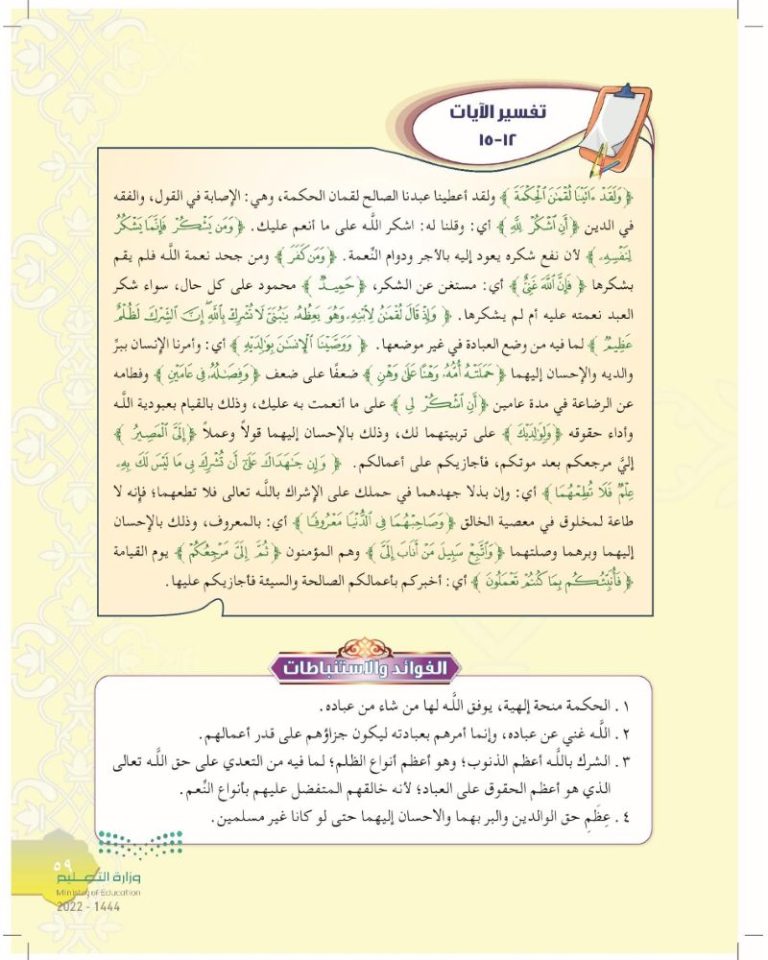 تفسير الآيات
١٢-١٥
﴿ وَلَقَدْ ءَاتَيْنَا لُقْمَٰنَ ٱلْحِكْمَةَ ﴾ ولقد أعطينا عبدنا الصالح لقمان الحكمة، وهي: الإصابة في القول، والفقه
في الدين ﴿ أَنِ ٱشْكُرْ لِلَّهِ ﴾ أي: وقلنا له: اشكر اللَّه على ما أنعم عليك. ﴿ وَمَن يَشْكُرْ فَإِنَّمَا يَشْكُرُ
لِنَفْسِهِۦ ﴾ لأن نفع شكره يعود إليه بالأجر ودوام النِّعمة. ﴿ وَمَن كَفَرَ ﴾ ومن جحد نعمة اللَّه فلم يقم
بشكرها ﴿ فَإِنَّ ٱللَّهَ غَنِىٌّ ﴾ أي: مستغن عن الشكر، ﴿ حَمِيدٌ ﴾ محمود على كل حال، سواء شكر
العبد نعمته عليه أم لم يشكرها. ﴿ وَإِذْ قَالَ لُقْمَٰنُ لِٱبْنِهِۦ وَهُوَ يَعِظُهُۥ يَٰبُنَىَّ لَا تُشْرِكْ بِٱللَّهِ إِنَّ ٱلشِّرْكَ لَظُلْمٌ
عَظِيمٌ ﴾ لما فيه من وضع العبادة في غير موضعها. ﴿ وَوَصَّيْنَا ٱلْإِنسَٰنَ بِوَٰلِدَيْهِ ﴾ أي: وأمرنا الإنسان ببرِّ
والديه والإحسان إليهما ﴿ حَمَلَتْهُ أُمُّهُۥ وَهْنًا عَلَىٰ وَهْنٍ ﴾ ضعفًا على ضعف ﴿ وَفِصَٰلُهُۥ فِى عَامَيْنِ ﴾ وفطامه
عن الرضاعة في مدة عامين ﴿ أَنِ ٱشْكُرْ لِى ﴾ على ما أنعمت به عليك، وذلك بالقيام بعبودية اللَّه
وأداء حقوقه ﴿ وَلِوَٰلِدَيْكَ ﴾ على تربيتهما لك، وذلك بالإحسان إليهما قولاً وعملاً ﴿ إِلَىَّ ٱلْمَصِيرُ ﴾
إليَّ مرجعكم بعد موتكم، فأجازيكم على أعمالكم. ﴿ وَإِن جَٰهَدَاكَ عَلَىٰٓ أَن تُشْرِكَ بِى مَا لَيْسَ لَكَ بِهِۦ
عِلْمٌ فَلَا تُطِعْهُمَا ﴾ أي: وإن بذلا جهدهما في حملك على الإشراك باللَّه تعالى فلا تطعهما؛ فإنه لا
طاعة لمخلوق في معصية الخالق ﴿ وَصَاحِبْهُمَا فِى ٱلدُّنْيَا مَعْرُوفًا ﴾ أي: بالمعروف، وذلك بالإحسان
إليهما وبرهما وصلتهما ﴿ وَٱتَّبِعْ سَبِيلَ مَنْ أَنَابَ إِلَىَّ ﴾ وهم المؤمنون ﴿ ثُمَّ إِلَىَّ مَرْجِعُكُمْ ﴾ يوم القيامة
﴿ فَأُنَبِّئُكُم بِمَا كُنتُمْ تَعْمَلُونَ ﴾ أي: أخبركم بأعمالكم الصالحة والسيئة فأجازيكم عليها.
الفوائد والاستنباطات
١ . الحكمة منحة إلهية، يوفق اللَّه لها من شاء من عباده.
٢ . اللَّه غني عن عباده، وإنما أمرهم بعبادته ليكون جزاؤهم على قدر أعمالهم.
٣ . الشرك باللَّه أعظم الذنوب؛ وهو أعظم أنواع الظلم؛ لما فيه من التعدي على حق اللَّه تعالى
الذي هو أعظم الحقوق على العباد؛ لأنه خالقهم المتفضل عليهم بأنواع النِّعم.
٤ . عِظَمِ حق الوالدين والبر بهما والاحسان إليهما حتى لو كانا غير مسلمين.
٥٩
وزارة التعليم
Ministry of Education
2022 - 1444